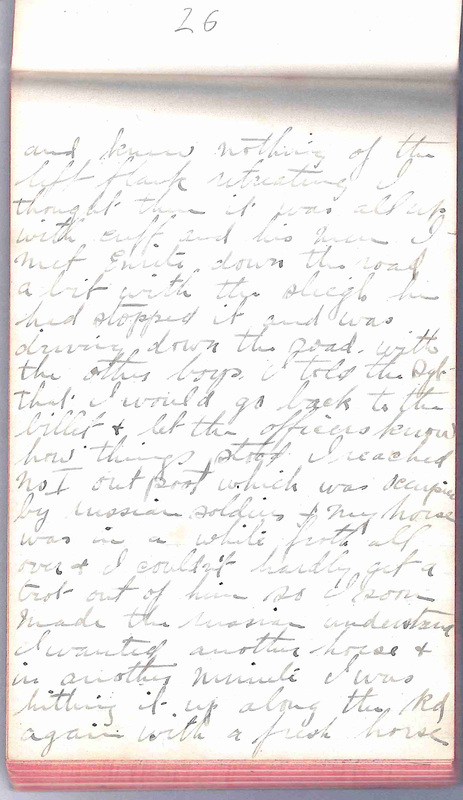 26
and knew nothing of the
left flank retreating I
thought then it was all up
with cuff and his men I
met Smith down the road
a bit with the sleigh he
hed stopped it and was
driving down the road with
the other boys. I told the Sgt
that I would go back to the
billit & let the officers know
how things stood I reached
No I out post which was occupied
by russian soldiers & my horse
was in a while froth all
over & I couldn't hardly get a
trot out of him so I soon
made the russian understand
I wanted another horse &
in another minute I was
hitting it up along the Rd
again with a fresh horse